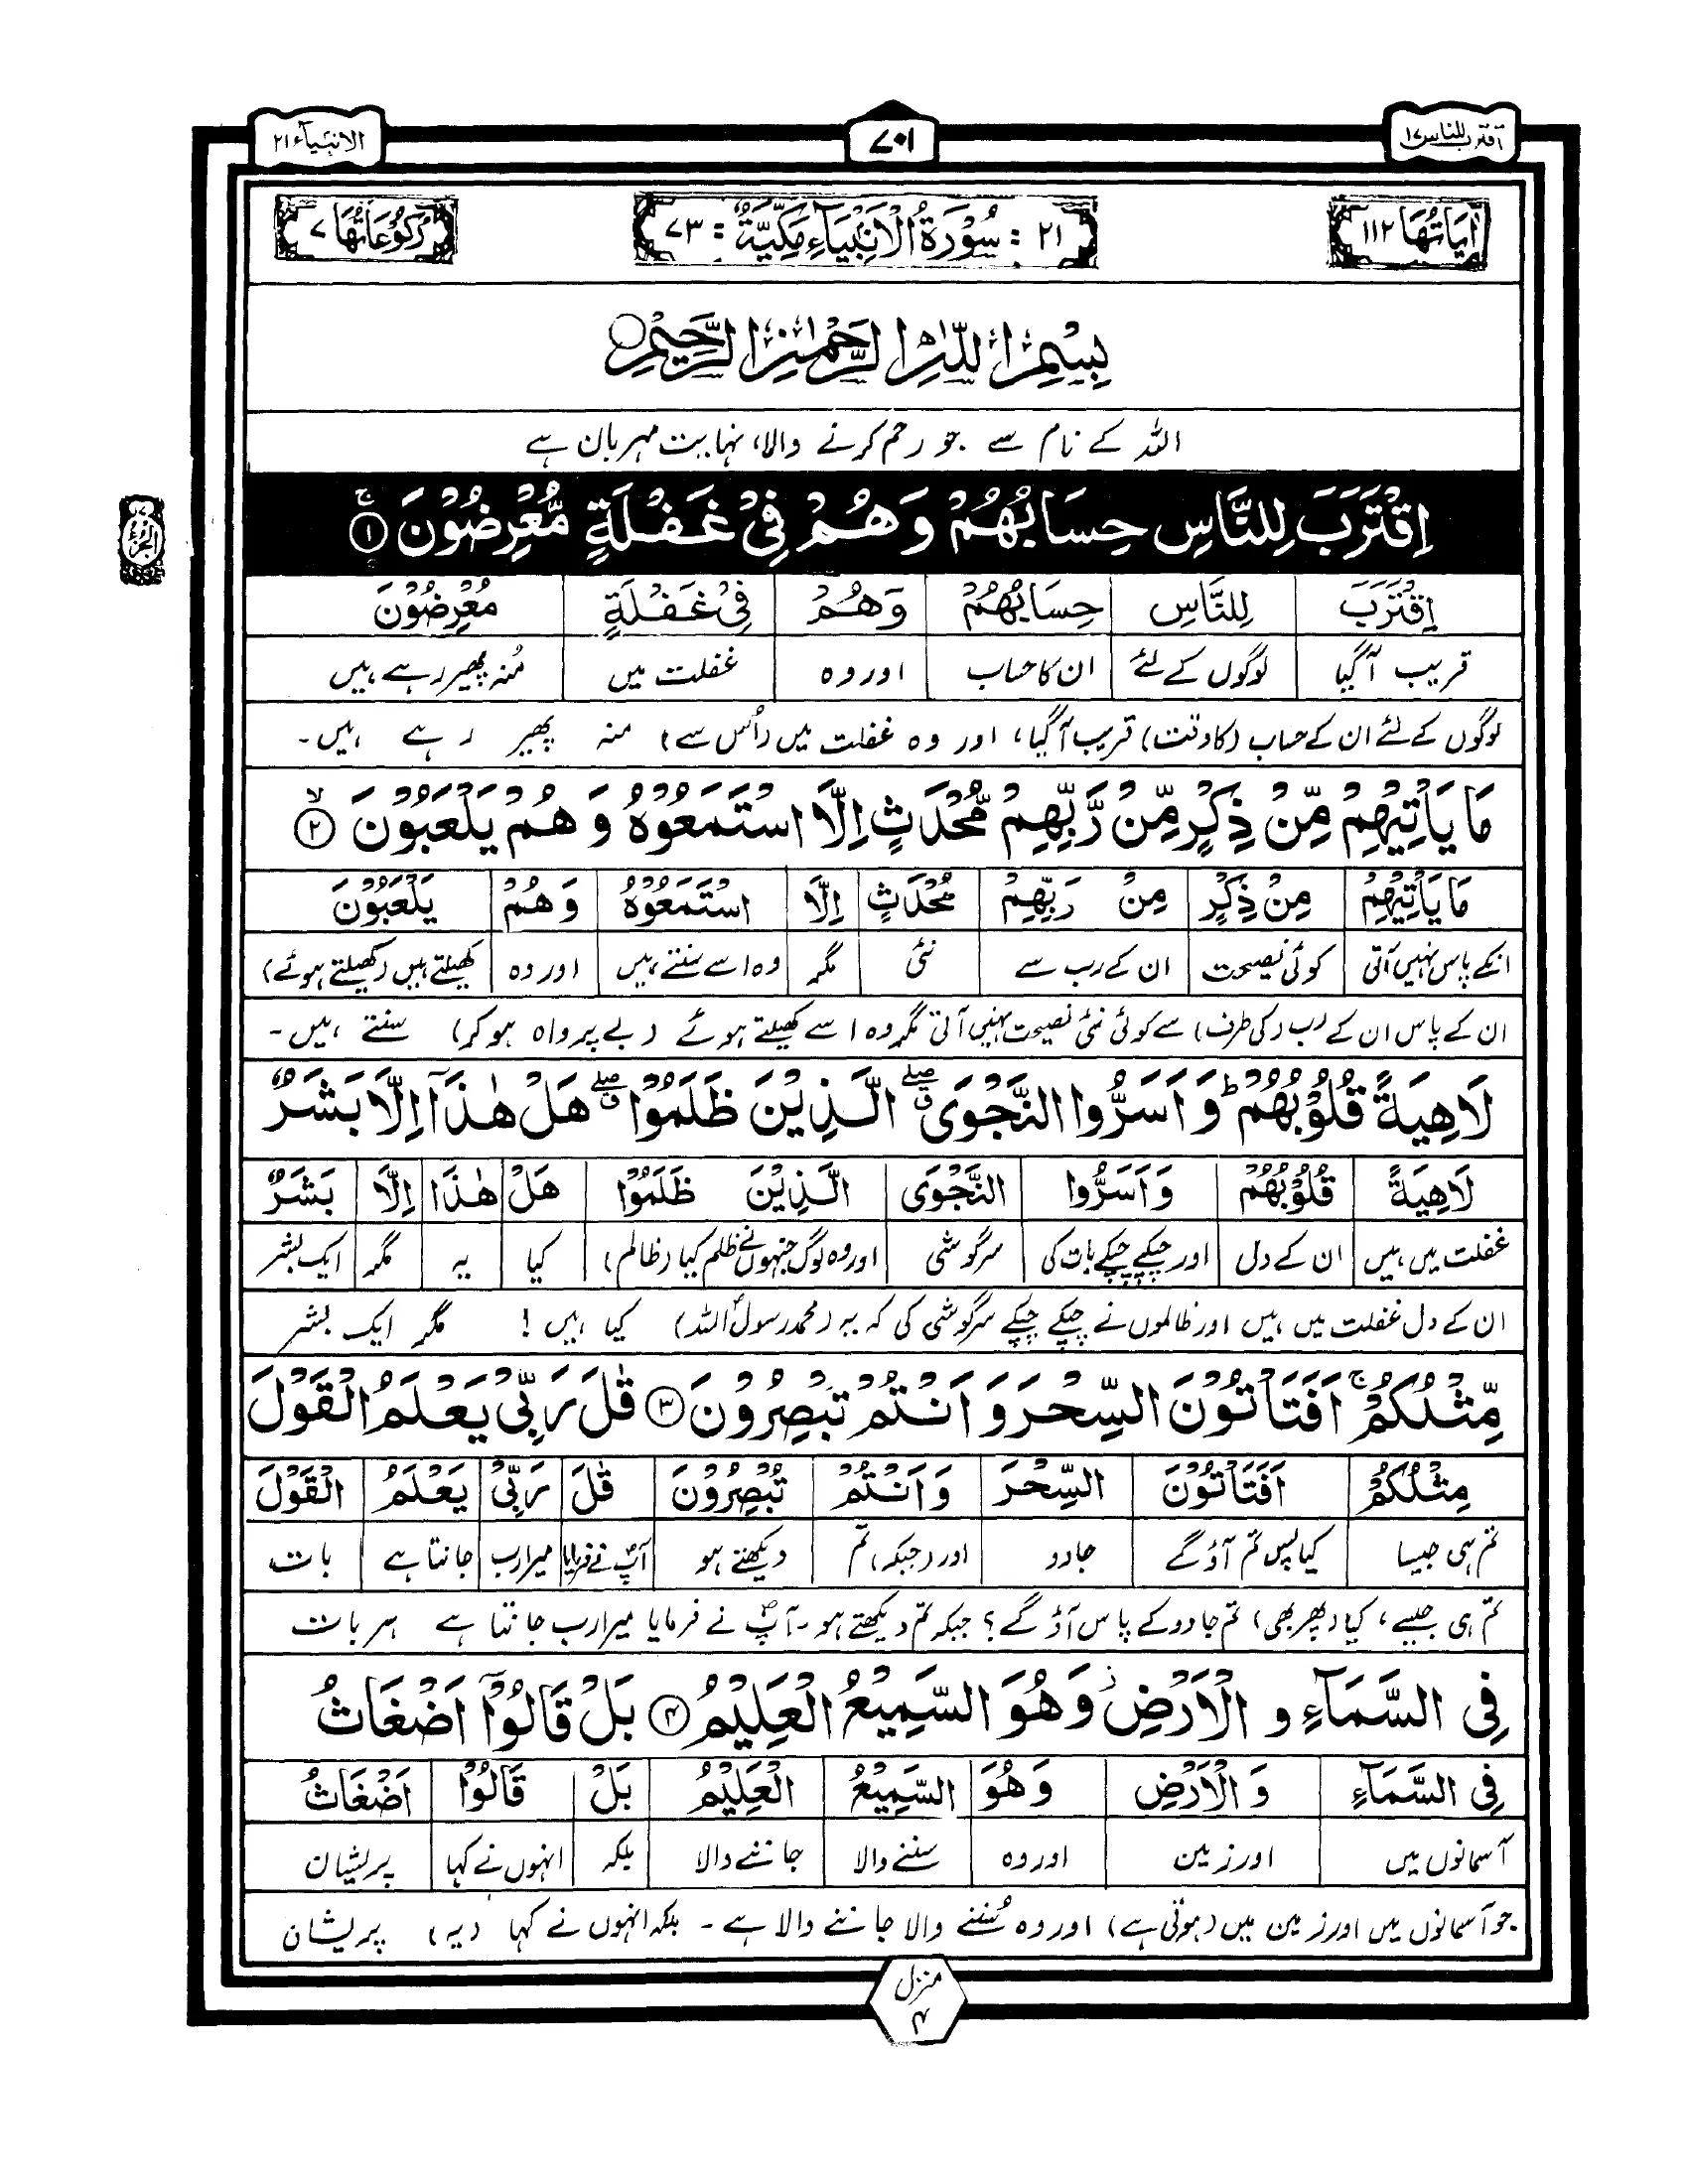 اقترب للناس ۱۷
۷۰۱
الانبیاء ۲۱
اٰیَاتُهَا ۱۱۲
۲۱ : سُوْرَةُ الْاَنْۢبِیَآءِ مَكِّیَّةٌ : ۷۳
رُكُوْعَاتُهَا ۷
بِسْمِ اللّٰهِ الرَّحْمٰنِ الرَّحِیْمِ
اللہ کے نام سے جو رحم کرنے والا، نہایت مہربان ہے
اِقْتَرَبَ لِلنَّاسِ حِسَابُهُمْ وَهُمْ فِیْ غَفْلَةٍ مُّعْرِضُوْنَ ۚ ۱
الجزء
اِقْتَرَبَ لِلنَّاسِ حِسَابُهُمْ وَهُمْ فِیْ غَفْلَةٍ مُعْرِضُوْنَ
قریب آگیا لوگوں کے لئے ان کا حساب اور وہ غفلت میں مُنہ پھیر رہے ہیں
لوگوں کے لئے ان کے حساب (کا وقت) قریب آگیا، اور وہ غفلت میں (اُس سے) منہ پھیر رہے ہیں۔
مَا یَاْتِیْهِمْ مِّنْ ذِكْرٍ مِّنْ رَّبِّهِمْ مُّحْدَثٍ اِلَّا اسْتَمَعُوْهُ وَهُمْ یَلْعَبُوْنَ ۙ ۲
مَا یَاْتِیْهِمْ مِنْ ذِكْرٍ مِنْ رَبِّهِمْ مُحْدَثٍ اِلَّا اسْتَمَعُوْهُ وَهُمْ یَلْعَبُوْنَ
انکے پاس نہیں آتی کوئی نصیحت ان کے رب سے نئی مگر وہ اسے سنتے ہیں اور وہ کھیلتے ہیں (کھیلتے ہوئے)
ان کے پاس ان کے رب (کی طرف) سے کوئی نئی نصیحت نہیں آتی مگر وہ اسے کھیلتے ہوئے (بے پرواہ ہو کر) سنتے ہیں۔
لَاهِیَةً قُلُوْبُهُمْ ؕ وَاَسَرُّوا النَّجْوَی ۖۗ الَّذِیْنَ ظَلَمُوْا ۖۗ هَلْ هٰذَاۤ اِلَّا بَشَرٌ
لَاهِیَةً قُلُوْبُهُمْ وَاَسَرُّوا النَّجْوَی الَّذِیْنَ ظَلَمُوْا هَلْ هٰذَا اِلَّا بَشَرٌ
غفلت میں ہیں ان کے دل اور چپکے چپکے بات کی سرگوشی اور وہ لوگ جنہوں نے ظلم کیا (ظالم) کیا یہ مگر ایک بشر
ان کے دل غفلت میں ہیں اور ظالموں نے چپکے چپکے سرگوشی کی کہ یہ (محمد رسول اللہ) کیا ہیں! مگر ایک بشر
مِّثْلُكُمْ ۚ اَفَتَاْتُوْنَ السِّحْرَ وَاَنْتُمْ تُبْصِرُوْنَ ۳ قٰلَ رَبِّیْ یَعْلَمُ الْقَوْلَ
مِثْلُكُمْ اَفَتَاْتُوْنَ السِّحْرَ وَاَنْتُمْ تُبْصِرُوْنَ قٰلَ رَبِّیْ یَعْلَمُ الْقَوْلَ
تم ہی جیسا کیا پس تم آؤ گے جادو اور (جبکہ) تم دیکھتے ہو آپؐ نے فرمایا میرا رب جانتا ہے بات
تم ہی جیسے، کیا (پھر بھی) تم جادو کے پاس آؤ گے؟ جبکہ تم دیکھتے ہو۔ آپؐ نے فرمایا میرا رب جانتا ہے ہر بات
فِی السَّمَآءِ وَ الْاَرْضِ ؗ وَهُوَ السَّمِیْعُ الْعَلِیْمُ ۴ بَلْ قَالُوْۤا اَضْغَاثُ
فِی السَّمَآءِ وَ الْاَرْضِ وَهُوَ السَّمِیْعُ الْعَلِیْمُ بَلْ قَالُوْا اَضْغَاثُ
آسمانوں میں اور زمین اور وہ سننے والا جاننے والا بلکہ انہوں نے کہا پریشان
جو آسمانوں میں اور زمین میں (ہوتی ہے) اور وہ سُننے والا جاننے والا ہے۔ بلکہ انہوں نے کہا (یہ) پریشان
منزل
۴